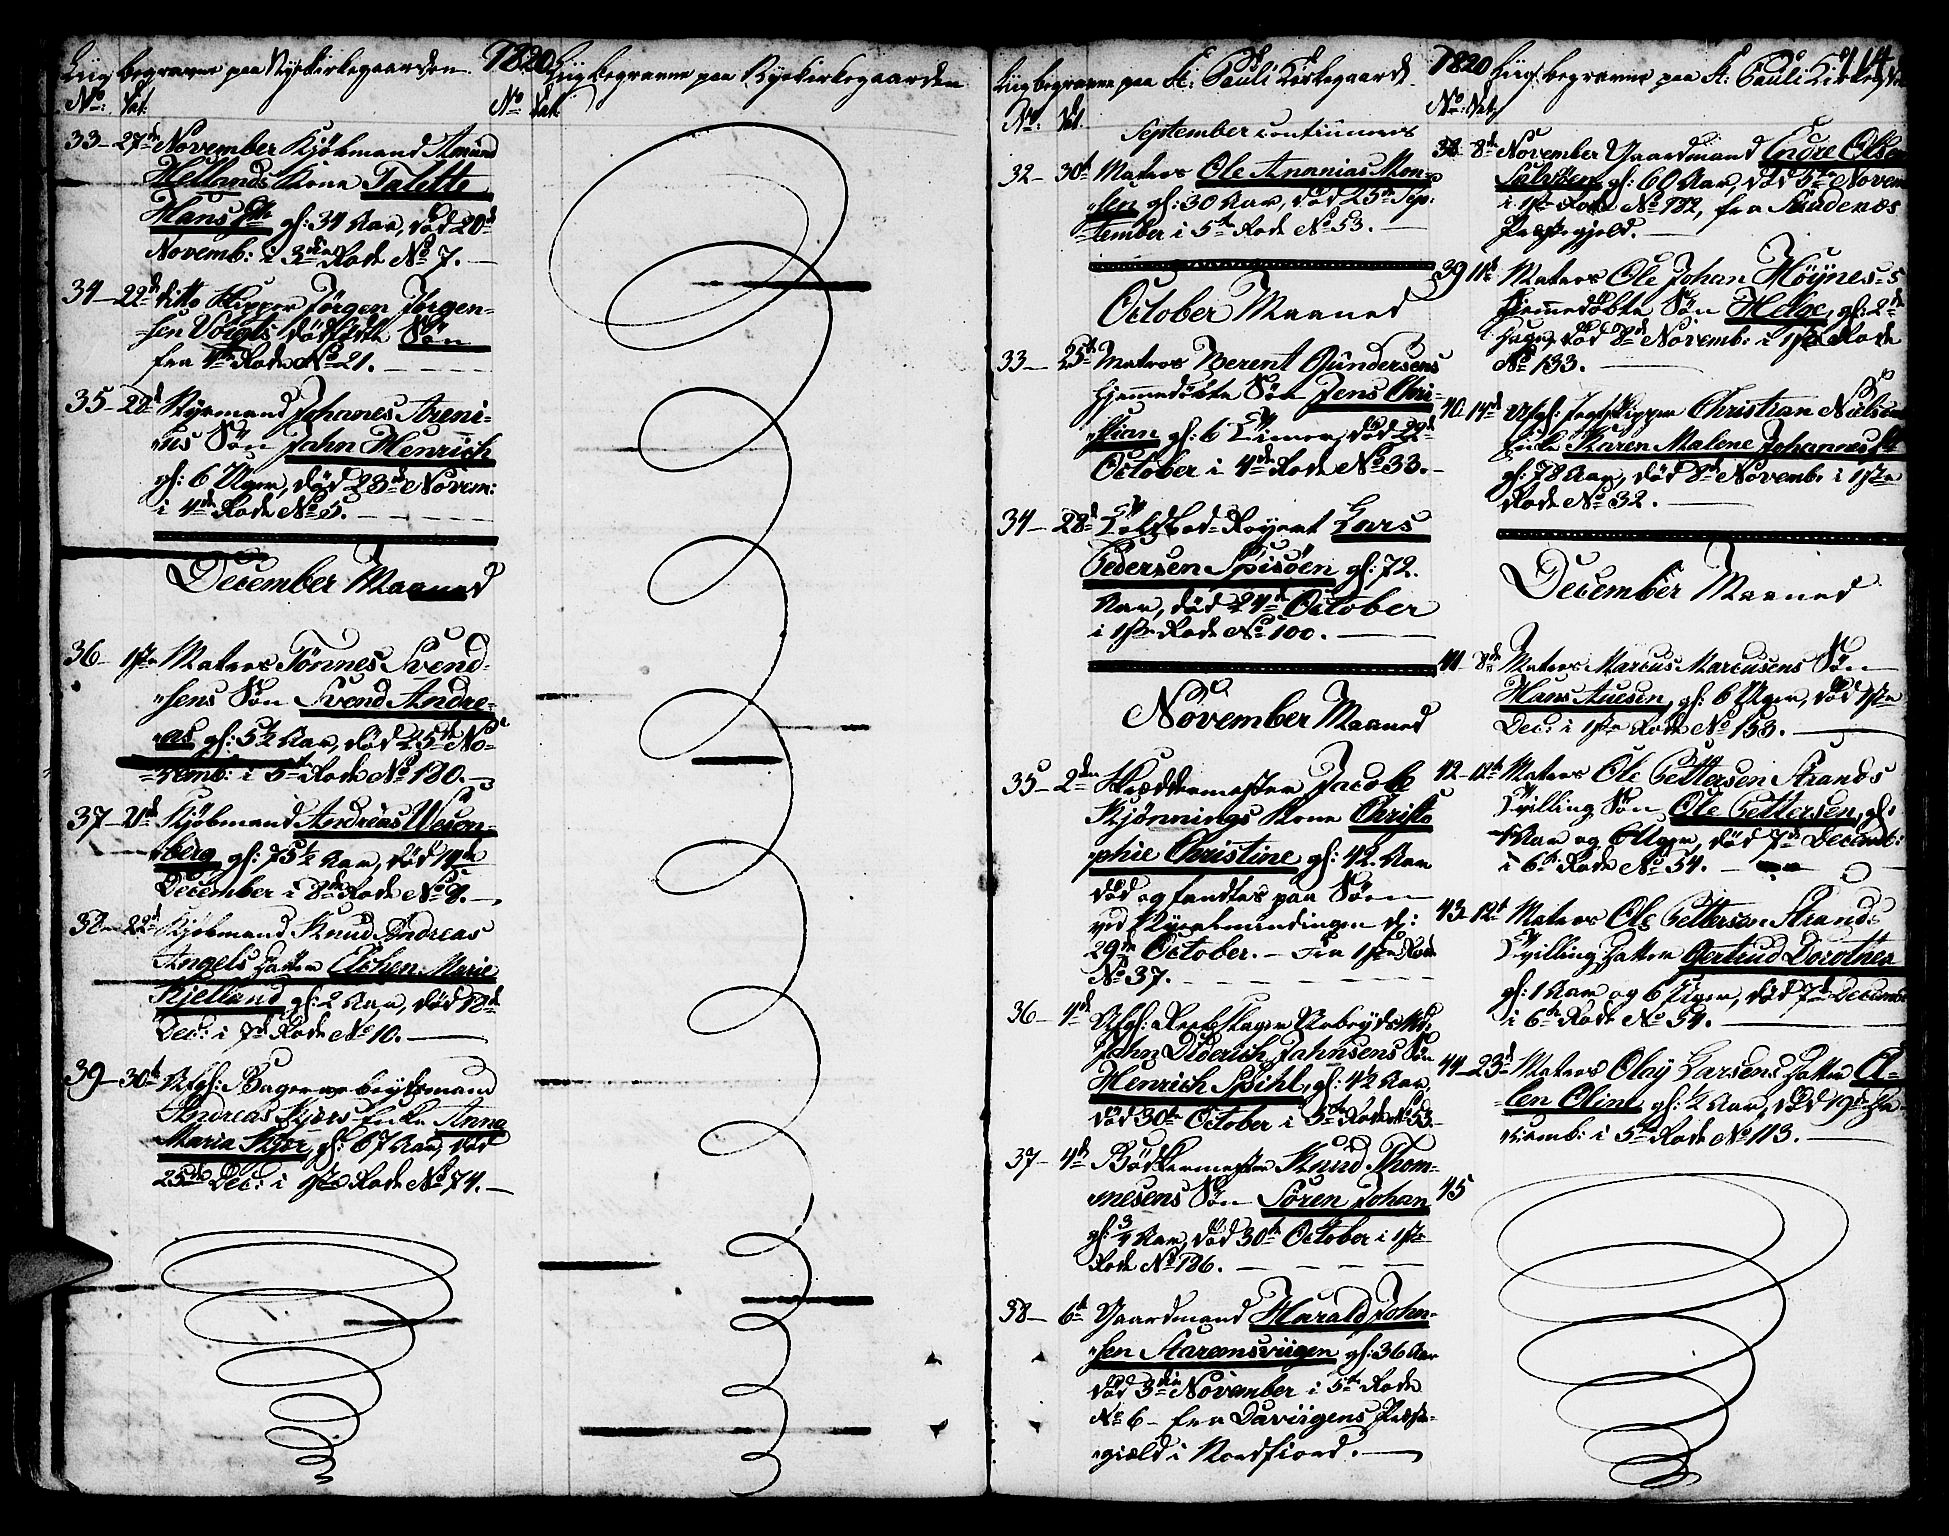 Liig begravne paa Nyekirkegaarden. 1820
No: Dat:
33- 27de November Kjøbmand Amund
Hellands Kone Talette
Hansdtr gl: 34 Aar, død 20d
Novemb: i 3die Rode No 7.
34- 22d ditto Skipper Jørgen Jørgen-
-sen Voigts dødfødte Søn
fra 4de Rode No 21.
35- 28d Styrmand Johanes Areni-
-us Søn Jahn Henrich
gl: 6 Uger, død 23de Novem:
i 4de Rode No 5.
December Maaned
36- 1ste Matros Tønnes Svend-
-sens Søn Svend Andre-
-as gl: 5½ Aar, død 25de No-
-vemb: i 5te Rode No 180.
37- 21d Kjøbmand Andreas Wesen-
-berg gl: 75½ Aar, død 14de
December i 8de Rode No 9.
38- 22d Kjøbmand Knud Andreas
Angels Datter Elshen Marie
Kjelland gl: 2 Aar, død 18d
Dec: i 7d Rode No 10.
39- 30d Afgl: Bager
Andreas Enke Anna
Maria gl: 67 Aar, død
25de Dec: i 1ste Rode No 74.
Liig begravne paa Nyekirkegaarden
No Dat:
Liig begravne paa St: Pauli Kirkegaard
No: Dat.
September continueres
32- 30d Matros Ole Ananias Mon-
-sen gl: 30 Aar, død 25de Sep-
-tember i 5te Rode No 53.
October Maaned
33- 25de Matros Berent Gundersens
hjemmedøbte Søn Jens Chri-
-stian gl: 6 Timer, død 22d
October i 4de Rode No 33.
34- 28d Lars
Pedersen Spisøen gl: 72.
Aar, død 24de October
i 1ste Rode No 100.
November Maaned
35- 2den Skræddermester Jacob
Kjønnings Kone Christo
phie Christine gl: 42 Aar
død og fandtes paa Søen
ved
29de October. - Fra 1ste Rode
No 37.
36- 4de Afgl:
Jahn Diderich Jahnsens Søn
Henrich Spihl, gl: 42 Aar,
død 30te October i 5te Rode No 53.
37- 4de Bødkermester Knud Thom-
-mesens Søn Søren Johan
gl: ¾ Aar, død 30te October i 1ste
Rode No 186.
38- 6te Gaardmand Harald Johen-
-sen gl: 36 Aar
død 3die November i 5te Rode
No 6 - fra Daviigens Præste-
-giæld i Nordfiord.
1820 Liig begravne paa St: Pauli Kirkegaard 114
No: Dat,
38 8de November Gaardmand Endre Olsen
gl: 60 Aar, død 5te Novem
i 1ste Rode No 182, fra Skudenæs
Præstegjeld.
39 11te Matros Ole Johan Høynes-s
hjemmedøbte Søn Helge, gl: 2de
Dage, død 8de Novemb: i 1ste Rode
No 133.
40 14de Afgl: Jagtskipper Christian Nielsens
Enke Karen Malene Johannesdtr
gl: 78 Aar, død 8de Novemb. i 1ste
Rode No 32.
December Maaned
41- 8de Matros Marcus Marcusens Søn
Hans Auesen, gl: 6 Uger, død 1ste
Dec: i 1ste Rode No 153.
42- 12te Matros Ole Pettersen Strands
Tvilling Søn Ole Pettersen, gl:
1 Aar og 6 Uger, død 7de Decemb:
i 6te Rode No 54.
43- 12te Matros Ole Pettersen Strands
Tvilling Datter Gertrud Dorothea
gl: 1 Aar og 6 Uger, død 7de Decemb
i 6te Rode No 54.
44- 23d Matros Olay Larsens Datter El-
-len Oline gl: ½ Aar, død 19de De-
-cemb: i 5te Rode No 113.
45